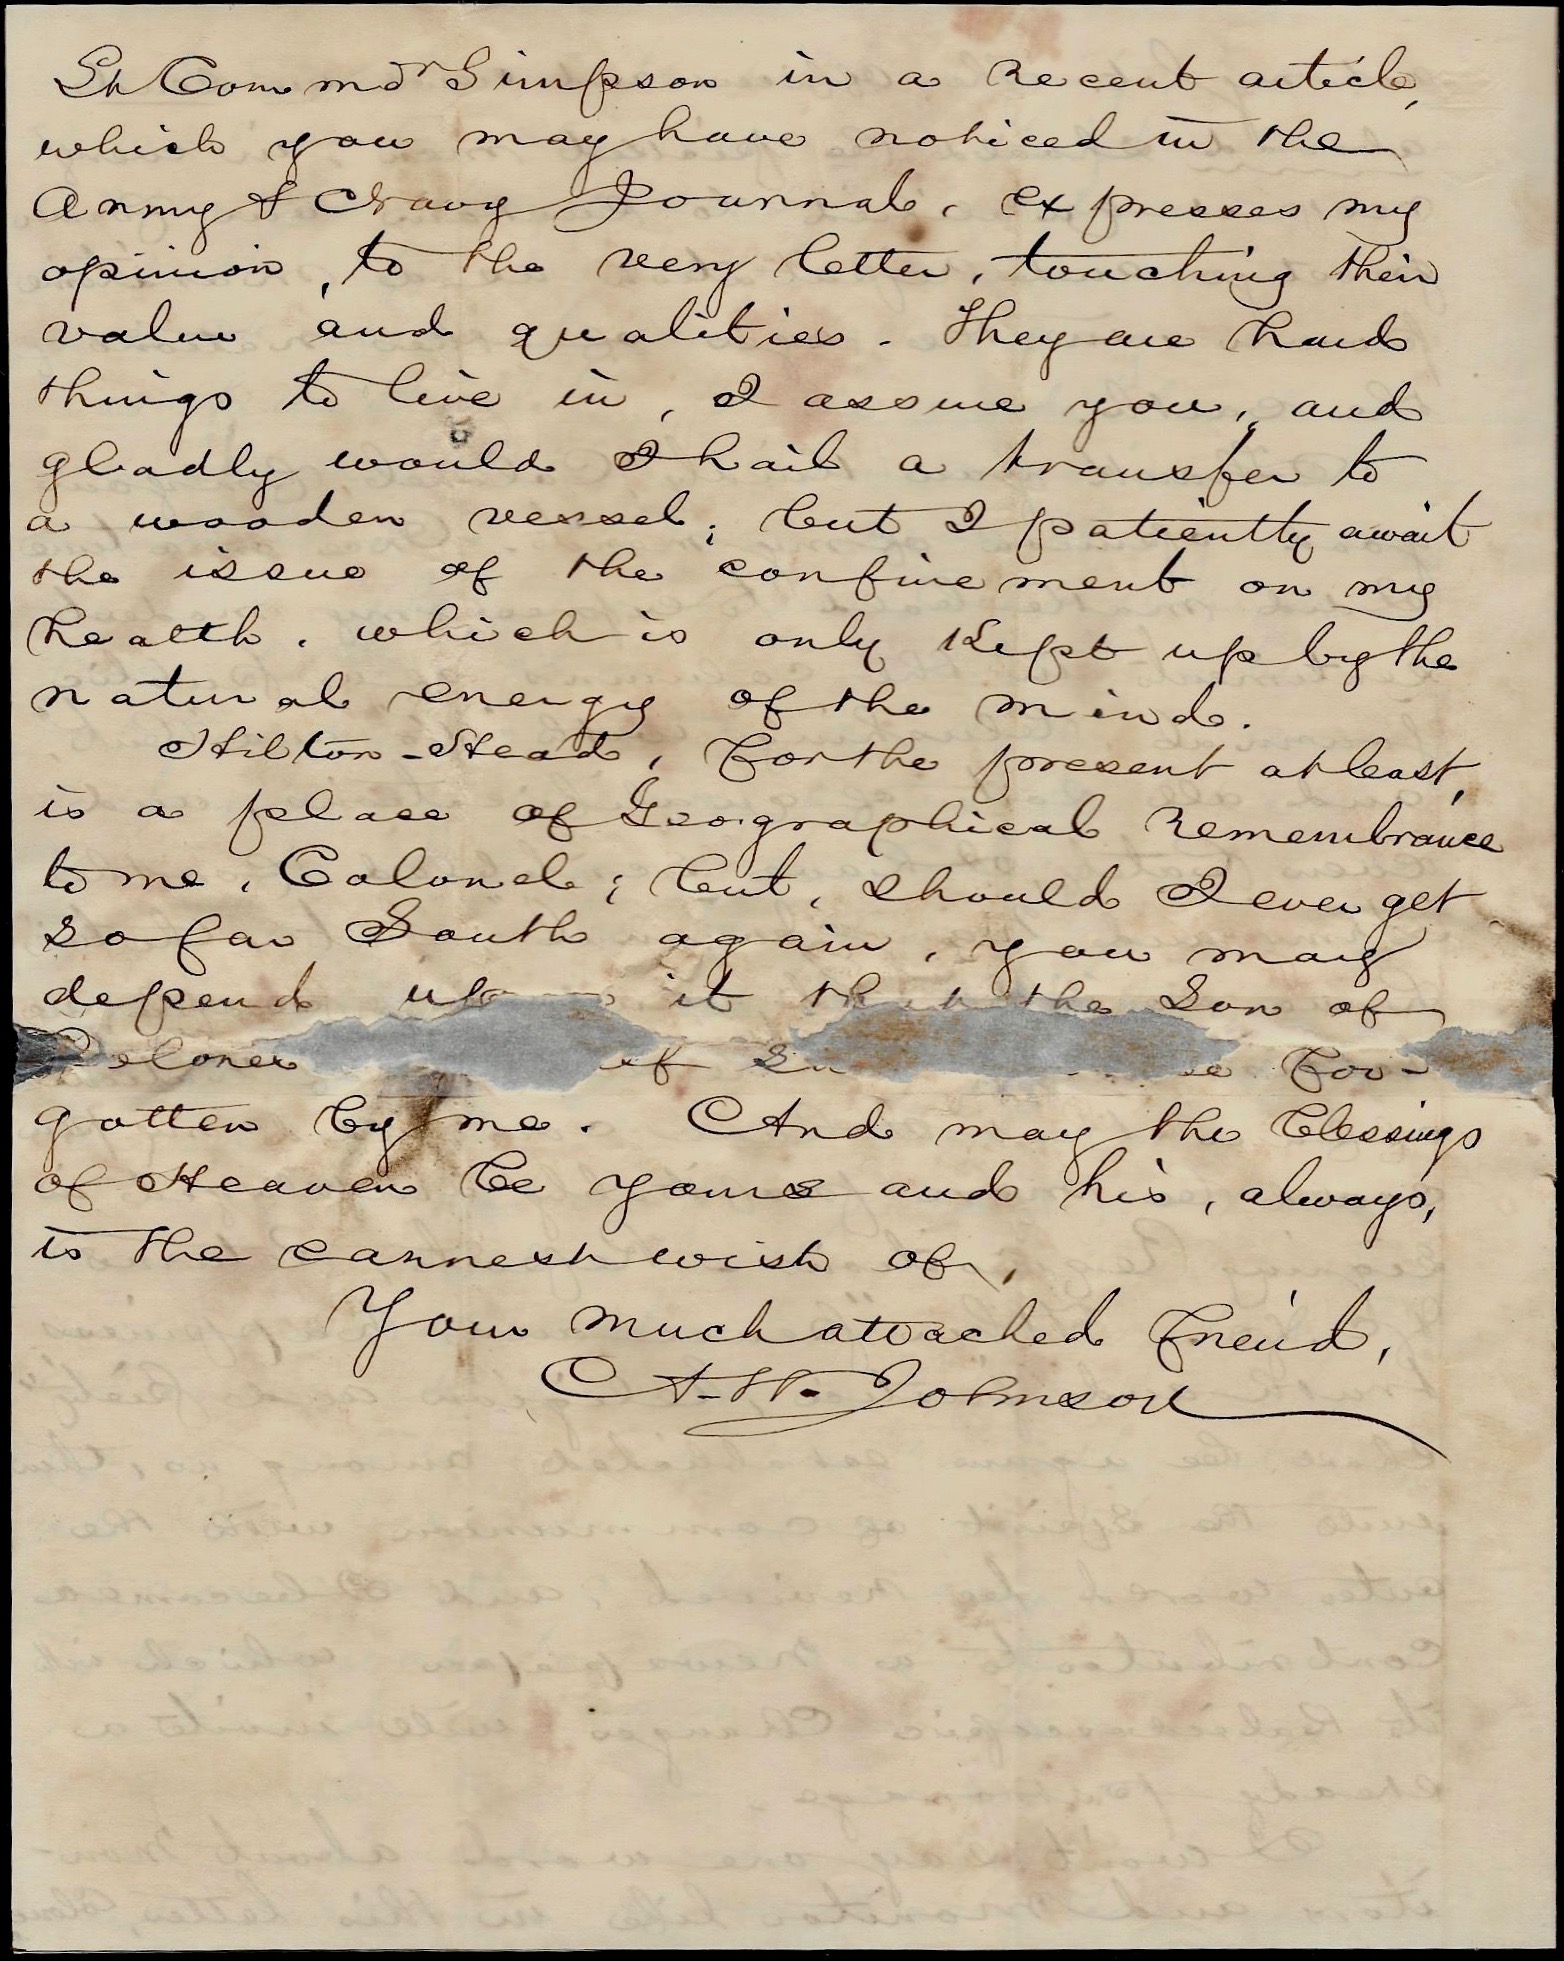 Lt Commdr Simpson in a recent article,
which you may have noticed in the
Army & Navy Journal, expresses my
opinion, to the very letter, touching their
value and qualities. They are hard
things to live in, I assure you, and
gladly would I hail a transfer to
a wooden vessel; but I patiently await
the issue of the confinement on my
health, which is only kept up by the
natural energy of the mind.
Hilton-Head, for the present at least,
is a place of Geographical remembrance
to me, Colonel; but, should I ever get
so far South again, you may
depend upon it that the Son of
for-
gotten by me. And may the blessings
of Heaven be yours and his, always,
is the earnest wish of,
Your much attached freind,
A. W. Johnson